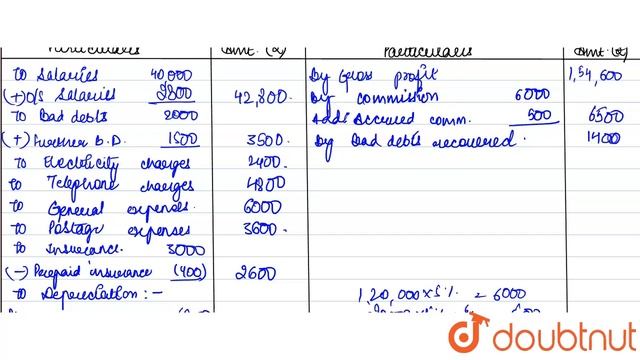 Particulars Amt. (₹) Particulars Amt. (₹)
To Salaries 40,000 By Gross profit 1,54,600
(+) O/S Salaries 2800 42,800. By commission 6000
To Bad debts 2000 Add: Accrued comm. 500 6500
(+) Further B.D. 1500 3500. By Bad debts recovered. 1400
To Electricity charges 2400.
To Telephone charges 4800
To General expenses. 6000
To Postage expenses 3600.
To Insurance. 3000
(-) Prepaid insurance (400) 2600
To Depreciation :- 1,20,000 x 5%. = 6000
doubtnut